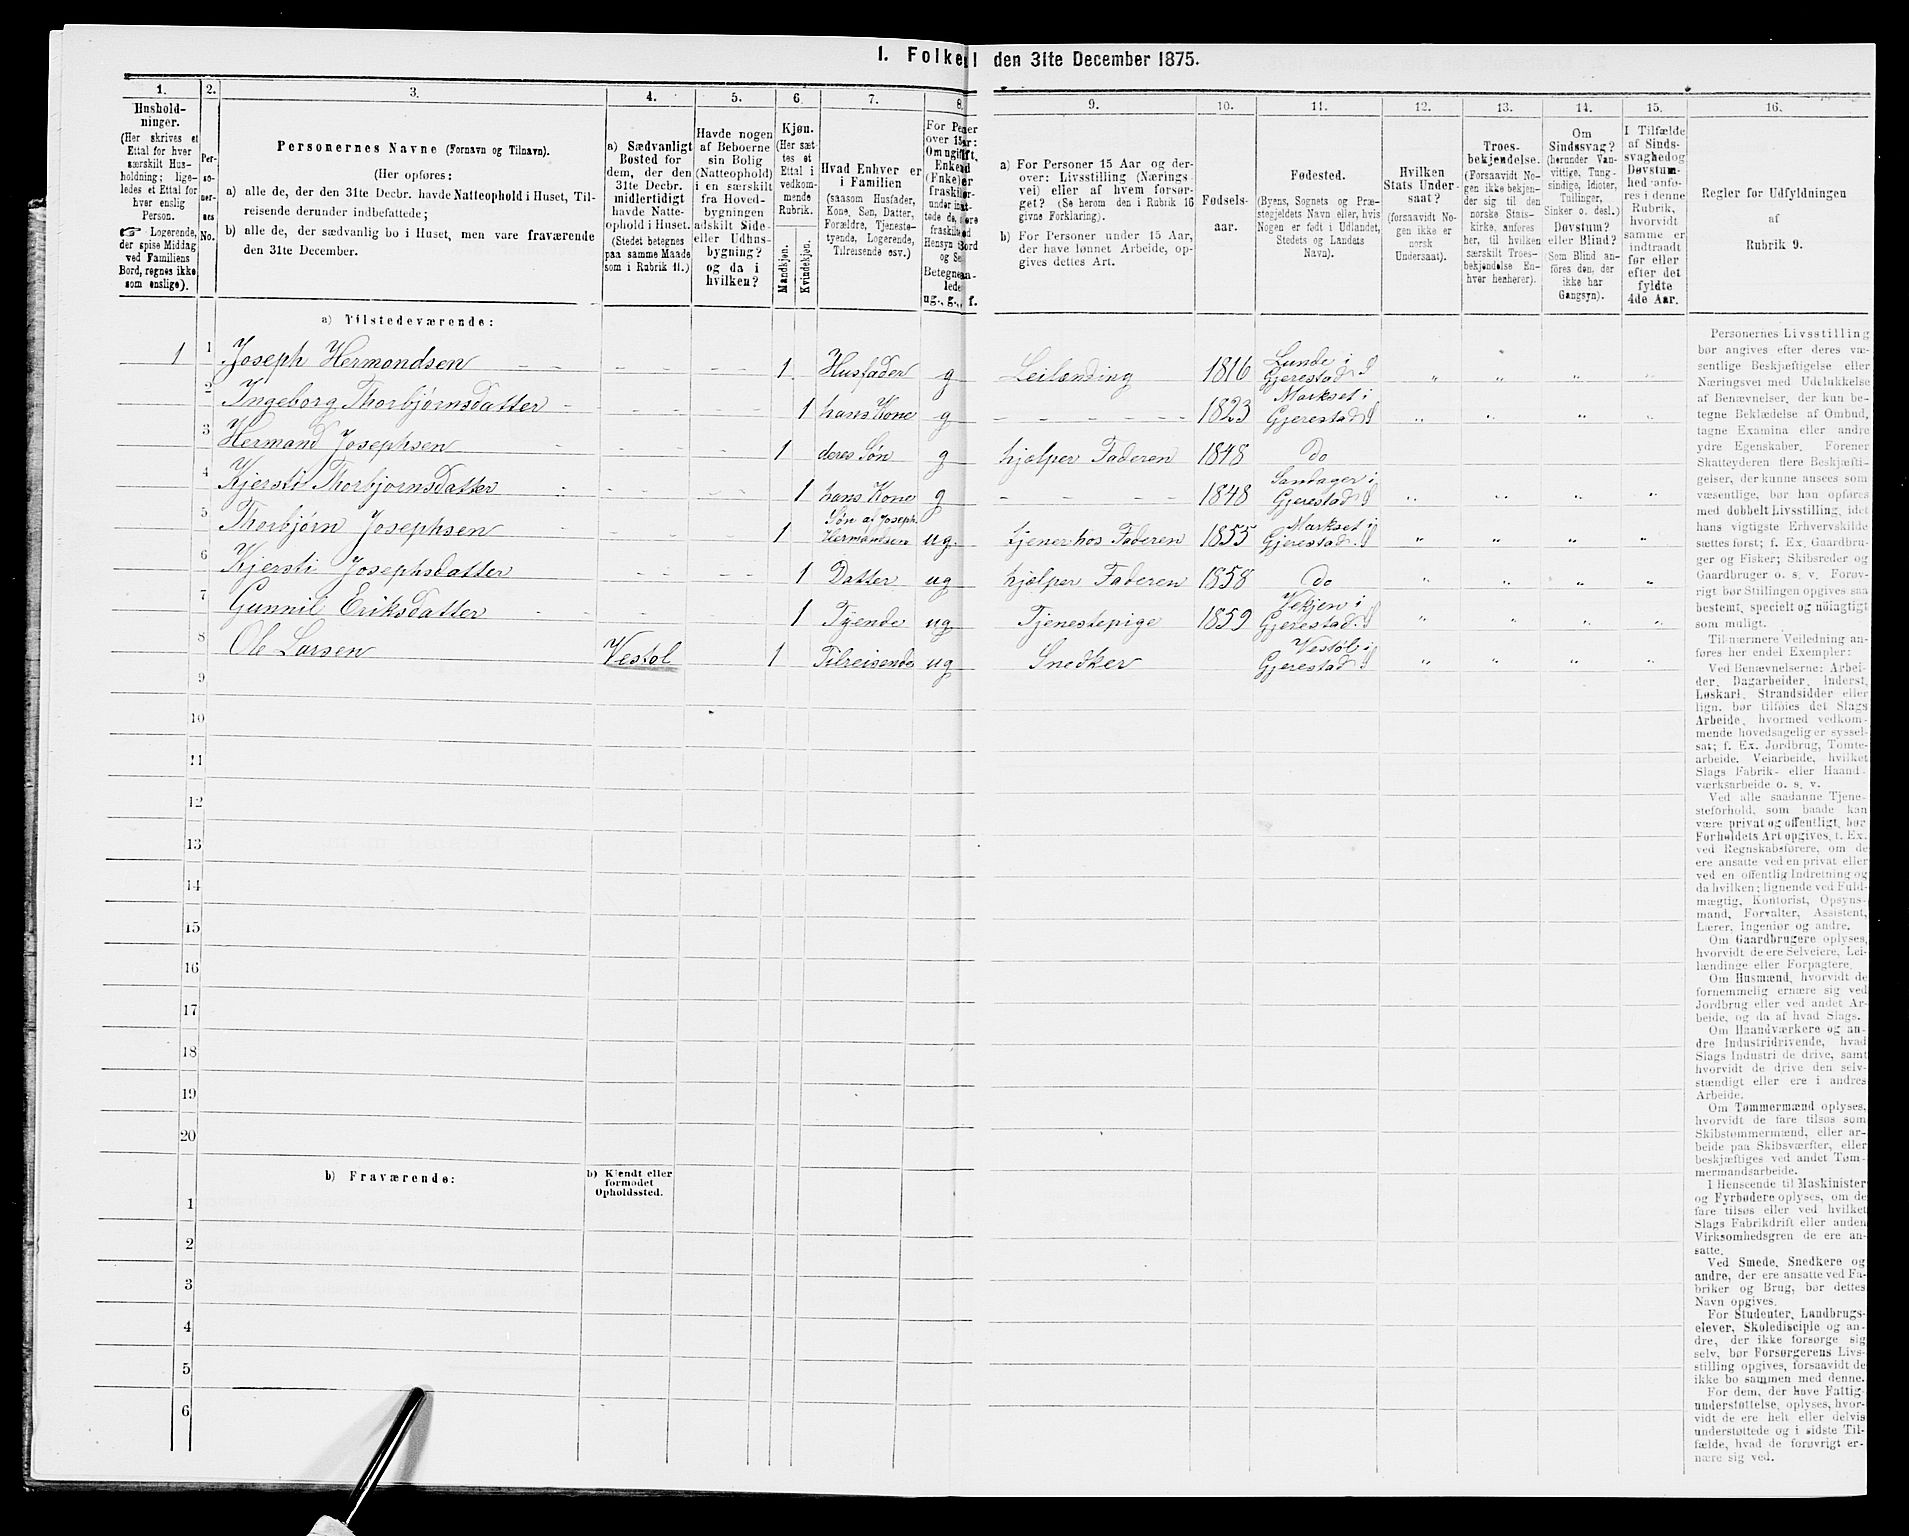 1. Folke den 31te December 1875.
1. 2. 3. 4. 5. 6. 7. 8. 9. 10. 11. 12. 13. 14. 15. 16.
Hushold-
ninger.
(Her skrives et
Ettal for hver
særskilt Hus-
holdning; lige-
ledes et Ettal for
hver enslig
Person.
☞ Logerende,
der spise Middag
ved Familiens
Bord, regnes ikke
som enslige).
Per-
so-
ner-
nes
No.
Personernes Navne (Fornavn og Tilnavn).
(Her opføres:
a) alle de, der den 31te Decbr. havde Natteophold i Huset, Til-
reisende derunder indbefattede;
b) alle de, der sædvanlig bo i Huset, men vare fraværende
den 31te December.
a) Sædvanligt
Bosted for
dem, der den
31te Decbr.
midlertidigt
havde Natte-
ophold i Huset.
(Stedet betegnes
paa samme Maade
som i Rubrik 11.)
Havde nogen
af Beboerne
sin Bolig
(Natteophold)
i en særskilt
fra Hoved-
bygningen
adskilt Side-
eller Udhus-
bygning?
og da i
hvilken?
Kjøn.
(Her sæt-
tes et
Ettal i
vedkom-
mende
Rubrik.
Mandkjøn.
Kvindekjøn.
Hvad Enhver er
i Familien
(saasom Husfader,
Kone, Søn, Datter,
Forældre, Tjeneste-
tyende, Logerende,
Tilreisende osv.)
ug., g., f.
a) For Personer 15 Aar og der-
over: Livsstilling (Nærings-
vei) eller af hvem forsør-
get? (Se herom den i Rubrik 16
givne Forklaring).
b) For Personer under 15 Aar,
der have lønnet Arbeide, op-
gives dettes Art.
Fødsels-
aar.
Fødested.
(Byens, Sognets og Præ-
stegjeldets Navn eller, hvis
Nogen er født i Udlandet,
Stedets og Landets
Navn).
Hvilken
Stats Under-
saat?
(forsaavidt No-
gen ikke er
norsk
Undersaat).
Troes-
bekjendelse.
(Forsaavidt No-
gen ikke bekjen-
der sig til den
norske Stats-
kirke, anføres
her, til hvilken
særskilt Troes-
bekjendelse En-
hver henhører).
Om
Sindssvag?
(herunder Van-
vittige, Tung-
sindige, Idioter,
Tullinger,
Sinker o. desl.)
Døvstum?
eller Blind?
(Som Blind an-
føres den, der
ikke har
Gangsyn).
I Tilfælde
af Sinds-
svaghed og
Døvstum-
hed anfø-
res i denne
Rubrik,
hvorvidt
samme er
indtraadt
før eller
efter det
fyldte
4de Aar.
Regler for Udfyldningen
af
Rubrik 9.
a) Tilstedeværende:
1 1 Joseph Hermondsen 1 Husfader g Leilænding 1816 Lunde i Gjerestad S " " " "
2 Ingeborg Thorbjørnsdatter 1 hans Kone g 1823 Markset i Gjerestad S " " " "
3 Hermand Josephsen 1 deres Søn g hjælper Faderen 1848 Do
4 Kjersti Thorbjornsdatter 1 hans Kone g 1848 Sandager i Gjerestad S " " " "
5 Thorbjørn Josephsen 1 Søn af Joseph Hermandsen ug. tjener hos Faderen 1855 Markset i Gjerestad S " " " "
6 Kjersti Josephsdatter 1 Datter ug hjælper Faderen 1858 Do " " " "
7 Gunnil Eriksdatter 1 Tyende ug Tjenestepige 1859 Vekjen i Gjerestad S " " " "
8 Ole Larsen Vestøl 1 Tilreisende ug Snedker Vestøl i Gjerestad S " " " "
9
10
11
12
13
14
15
16
17
18
19
20
b) Fraværende:
b) Kjendt eller
formodet
Opholdssted.
1
2
3
4
5
6
Personernes Livsstilling
bør angives efter deres væ-
sentlige Beskjæftigelse eller
Næringsvei med Udelukkelse
af Benævnelser, der kun be-
tegne Beklædelse af Ombud,
tagne Examina eller andre
ydre Egenskaber. Forener
Skatteyderen flere Beskjæfti-
gelser, der kunne ansees som
væsentlige, bør han opføres
med dobbelt Livsstilling, idet
hans vigtigste Erhvervskilde
sættes først; f. Ex. Gaardbru-
ger og Fisker; Skibsreder og
Gaardbruger o. s. v. Forøv-
rigt bør Stillingen opgives saa
bestemt, specielt og nøiagtigt
som muligt.
Til nærmere Veiledning an-
føres her endel Exempler:
Ved Benævnelserne: Arbei-
der, Dagarbeider, Inderst,
Løskarl, Strandsidder eller
lign. bør tilføies det Slags
Arbeide, hvormed vedkom-
mende hovedsagelig er syssel-
sat; f. Ex. Jordbrug, Tomte-
arbeide, Veiarbeide, hvilket
Slags Fabrik- eller Haand-
værksarbeide o. s. v.
Ved alle saadanne Tjene-
steforhold, som baade kan
være privat og offentligt, bør
Forholdets Art opgives, t. Ex.
ved Regnskabsførere, om de
ere ansatte ved en privat eller
ved en offentlig Indretning og
da hvilken; lignende ved Fuld-
mægtig, Kontorist, Opsyns-
mand, Forvalter, Assistent,
Lærer, Ingeniør og andre.
Om Gaardbrugere oplyses,
hvorvidt de ere Selveiere, Lei-
lændinge eller Forpagtere.
Om Husmænd, hvorvidt de
fornemmelig ernære sig ved
Jordbrug eller ved andet Ar-
beide, og da af hvad Slags.
Om Haandværkere og an-
dre Industridrivende, hvad
Slags Industri de drive, samt
hvorvidt de drive den selv-
stændigt eller ere i andres
Arbeide.
Om Tømmermænd oplyses,
hvorvidt de fare tilsøs som
Skibstømmermænd, eller ar-
beide paa Skibsværfter, eller
beskjæftiges ved andet Tøm-
mermandsarbeide.
I Henseende til Maskinister
og Fyrbødere oplyses, om de
fare tilsøs eller ved hvilket
Slags Fabrikdrift eller anden
Virksomhedsgren de ere an-
satte.
Ved Smede, Snedkere og
andre, der ere ansatte ved Fa-
briker og Brug, bør dettes
Navn opgives.
For Studenter, Landbrugs-
elever, Skoledisciple og an-
dre, der ikke forsørge sig
selv, bør Forsørgerens Livs-
stilling opgives, forsaavidt de
ikke bo sammen med denne.
For dem, der have Fattig-
understøttelse, oplyses, hvor-
vidt de ere helt eller delvis
understøttede og i sidste Til-
fælde, hvad de forøvrigt er-
nære sig ved.